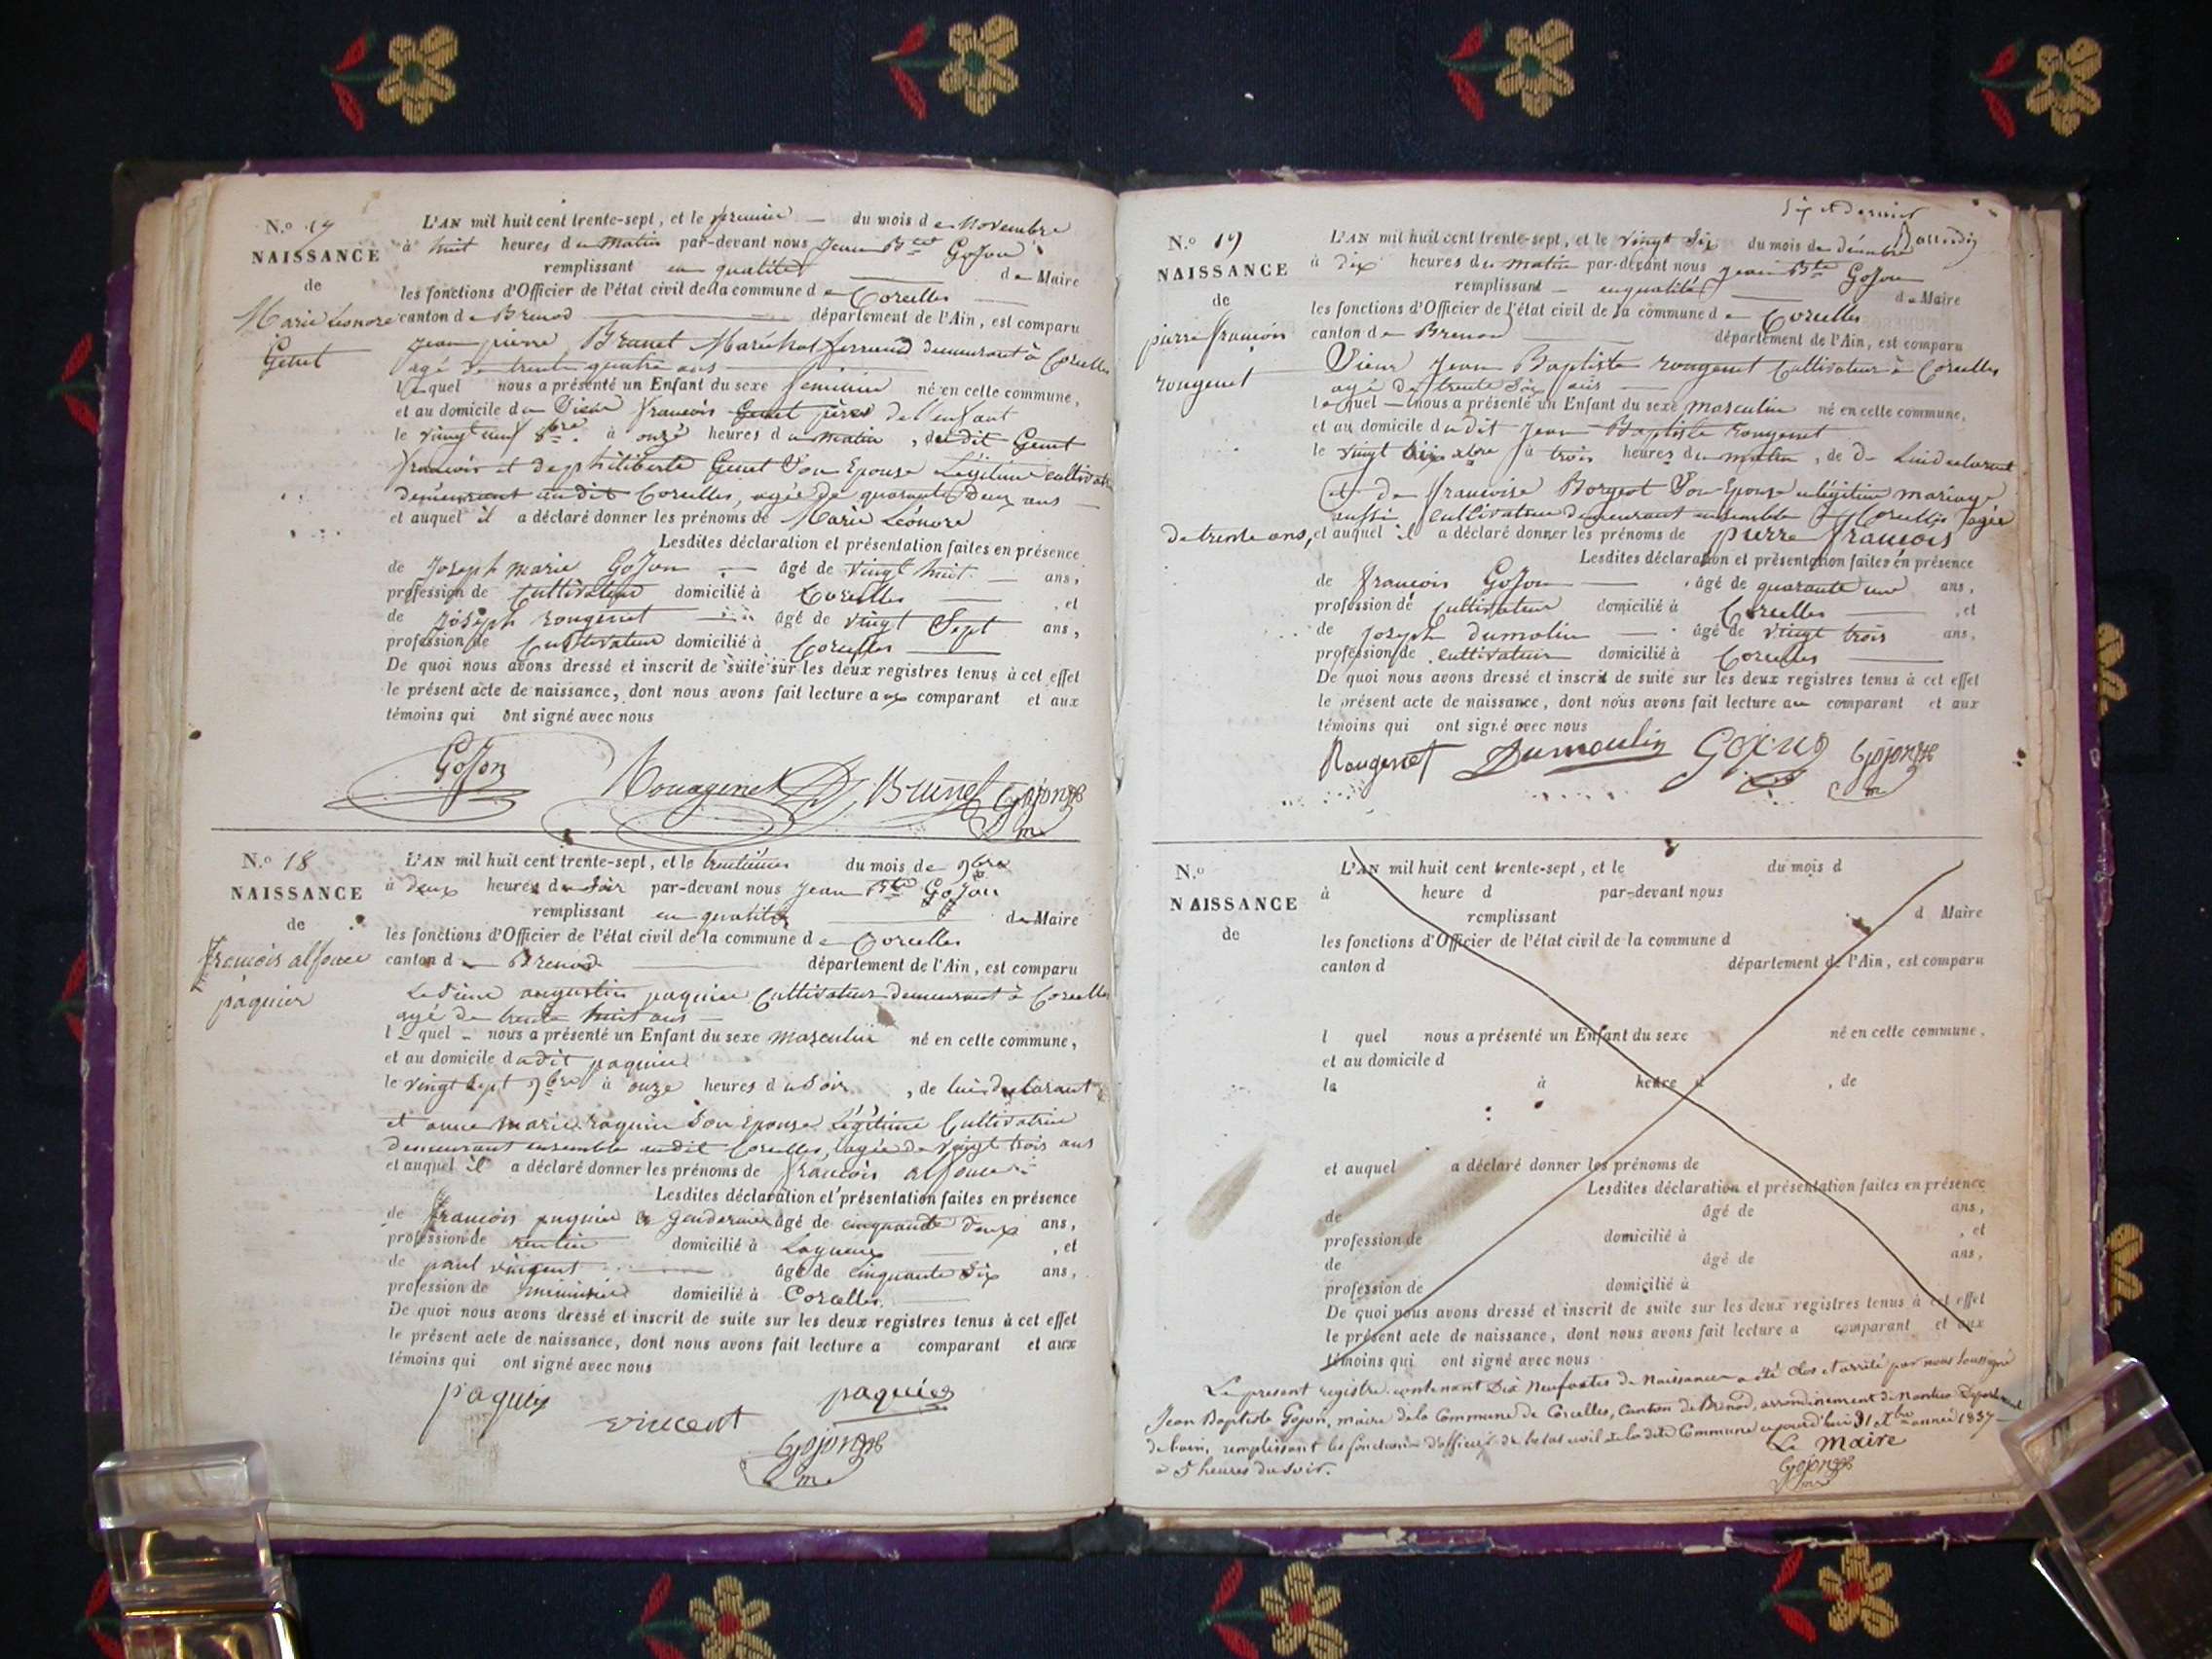 N.o 17
NAISSANCE
de
Marie Léonore
Genet
L'AN mil huit cent trente-sept, et le premier du mois de Novembre
à huit heures du matin par-devant nous Jean Bte Gojon
remplissant en qualité de Maire
les fonctions d'Officier de l'état civil de la commune de Corcelles
canton de Brenod département de l'Ain, est comparu
Jean pierre Brunet Maréchal ferrand demeurant à Corcelles
agé de trente quatre ans
lequel nous a présenté un Enfant du sexe feminin né en cette commune,
et au domicile du Sieur françois Genet père de l'enfant
le vingt neuf 8bre à onze heures du matin, du dit Genet
françois et de philiberte Genet Son Epouse Légitime
demeurant audit Corcelles, agée de quarante Deux ans
et auquel il a déclaré donner les prénoms de Marie Léonore
Lesdites déclaration et présentation faites en présence
de Joseph marie Gojon âgé de vingt huit ans,
profession de Cultivateur domicilié à Corcelles, et
de Joseph rougenet âgé de vingt Sept ans,
profession de Cultivateur domicilié à Corcelles
De quoi nous avons dressé et inscrit de suite sur les deux registres tenus à cet effet
le présent acte de naissance, dont nous avons fait lecture au comparant et aux
témoins qui ont signé avec nous
Gojon Rouagenet Brunet Gojon
m
N.o 18
NAISSANCE
de
françois alfonce
paquier
L'AN mil huit cent trente-sept, et le trentième du mois de 9bre
à deux heures du Soir par-devant nous Jean Bte Gojon
remplissant en qualité de Maire
les fonctions d'Officier de l'état civil de la commune de Corcelles
canton de Brenod département de l'Ain, est comparu
Le Sieur augustin paquier Cultivateur demeurant à Corcelles
agé de trente huit ans
lequel nous a présenté un Enfant du sexe masculin né en cette commune,
et au domicile dudit paquier
le vingt Sept 9bre à onze heures du Soir, de lui déclarant
et anne marie Son Epouse Légitime Cultivatrice
demeurant ensemble audit Corcelles, agée de vingt trois ans
et auquel il a déclaré donner les prénoms de françois alfonce
Lesdites déclaration et présentation faites en présence
de françois paquier gendarme âgé de cinquante deux ans,
profession de rentier domicilié à, et
de paul vincent âgé de cinquante Six ans,
profession de domicilié à Corcelles
De quoi nous avons dressé et inscrit de suite sur les deux registres tenus à cet effet
le présent acte de naissance, dont nous avons fait lecture a comparant et aux
témoins qui ont signé avec nous
paquier vincent paquier
Gojon
m
Six et dernier
N.o 19
NAISSANCE
de
pierre françois
rougenet
L'AN mil huit cent trente-sept, et le vingt Six du mois de décembre
à dix heures du matin par-devant nous Jean Bte Gojon
remplissant en qualité de Maire
les fonctions d'Officier de l'état civil de la commune de Corcelles
canton de Brenod département de l'Ain, est comparu
Sieur Jean Baptiste rougenet Cultivateur à Corcelles
agé de trente Six ans
lequel nous a présenté un Enfant du sexe masculin né en cette commune,
et au domicile dudit Jean Baptiste rougenet
le vingt Six xbre à trois heures du matin, de Lui déclarant
et de francoise Borgeot Son Epouse en légitime mariage
aussi Cultivateur demeurant ensemble à Corcelles agée
de trente ans, et auquel il a déclaré donner les prénoms de pierre françois
Lesdites déclaration et présentation faites en présence
de françois Gojon âgé de quarante un ans,
profession de Cultivateur domicilié à Corcelles, et
de Joseph dumolin âgé de vingt trois ans,
profession de cultivateur domicilié à Corcelles
De quoi nous avons dressé et inscrit de suite sur les deux registres tenus à cet effet
le présent acte de naissance, dont nous avons fait lecture au comparant et aux
témoins qui ont signé avec nous
Rougenet Dumoulin Gojon Gojon
m
N.o
NAISSANCE
de
L'AN mil huit cent trente-sept, et le du mois d
à heure d par-devant nous
remplissant d Maire
les fonctions d'Officier de l'état civil de la commune d
canton d département de l'Ain, est comparu
l quel nous a présenté un Enfant du sexe né en cette commune,
et au domicile d
le à heure d, de
et auquel a déclaré donner les prénoms de
Lesdites déclaration et présentation faites en présence
de âgé de ans,
profession de domicilié à, et
de âgé de ans,
profession de domicilié à
De quoi nous avons dressé et inscrit de suite sur les deux registres tenus à cet effet
le présent acte de naissance, dont nous avons fait lecture a comparant et aux
témoins qui ont signé avec nous
Le present registre contenant Dix Neuf actes de Naissance a été clos et arrêté par nous Soussigné
Jean Baptiste Gojon, maire de la Commune de Corcelles, Canton de Brénod, arrondissement de Nantua Département
de l'ain, remplissant les fonctions d'officier de l'etat civil de la dite Commune cejourd'hui 31 Xbre année 1837
à 5 heures du Soir.
Le maire
Gojon
m